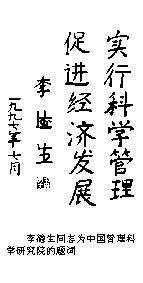 实行科学管理
促进经济发展
李滋生
一九九七年七月
李滋生同志为中国管理科
学研究院的题词